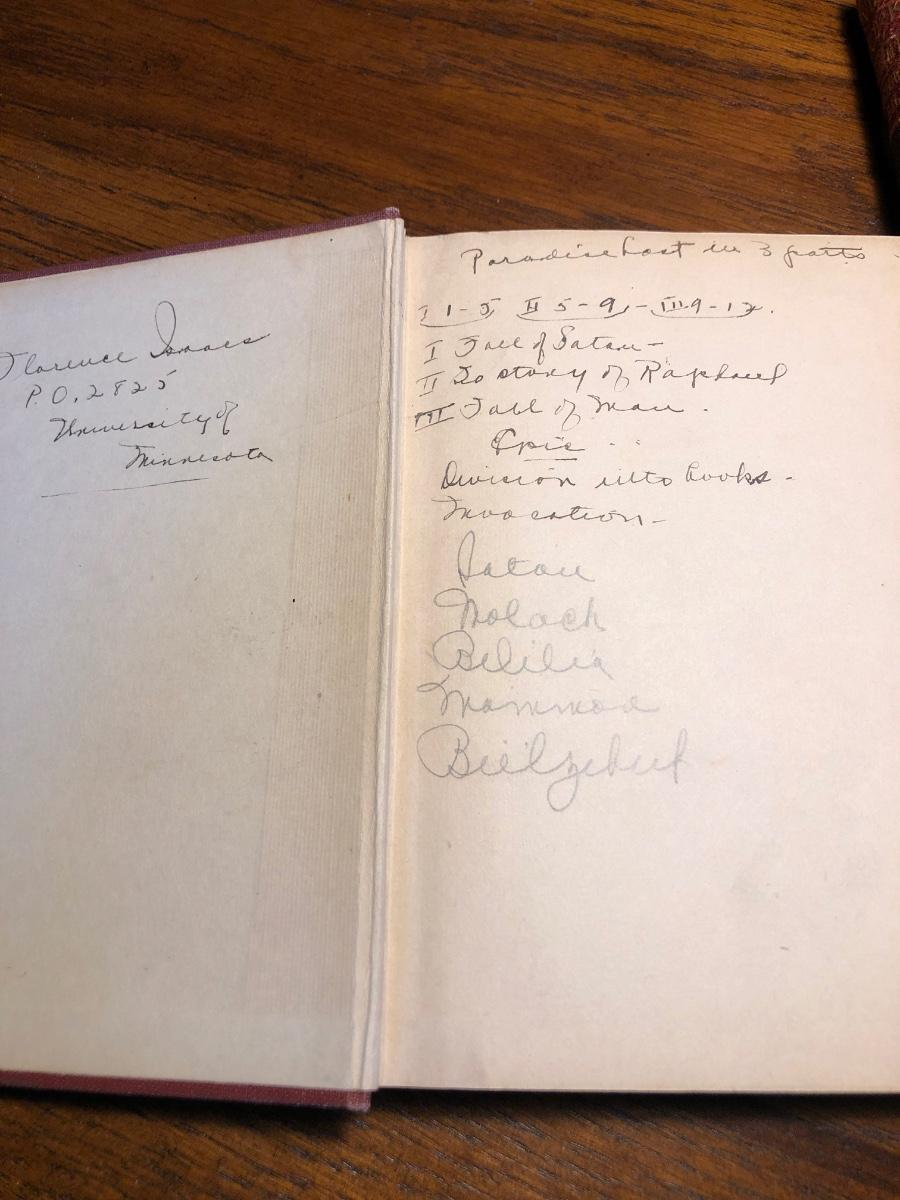 Florence Isaacs
P.O. 2825
University of
Minnesota
Paradise Lost in 3 parts -
I 1-5, II 5-9, - III 9-12.
I Fall of Satan -
II Is story of Raphael
III Fall of Man.
Epic
Division into books -
Invocation -
Satan
Moloch
Belilia
Mammon
Bielzebub